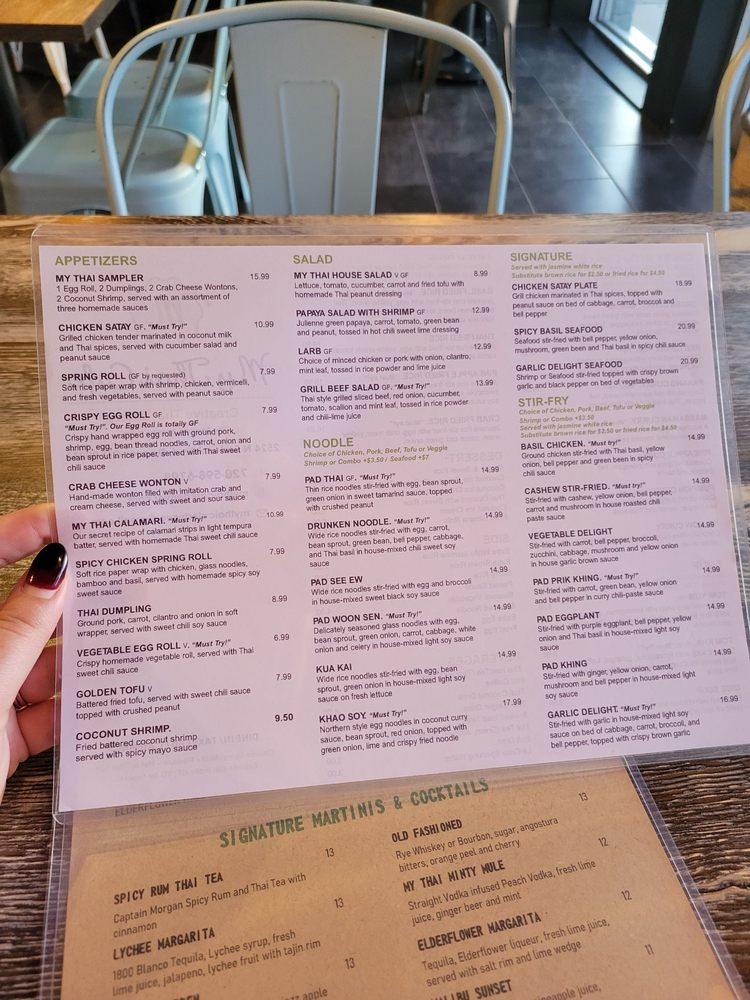 APPETIZERS
MY THAI SAMPLER 15.99
1 Egg Roll, 2 Dumplings, 2 Crab Cheese Wontons,
2 Coconut Shrimp, served with an assortment of
three homemade sauces
CHICKEN SATAY GF. "Must Try!" 10.99
Grilled chicken tender marinated in coconut milk
and Thai spices, served with cucumber salad and
peanut sauce
SPRING ROLL (GF by requested) 7.99
Soft rice paper wrap with shrimp, chicken, vermicelli,
and fresh vegetables, served with peanut sauce
CRISPY EGG ROLL GF 7.99
"Must Try!". Our Egg Roll is totally GF
Crispy hand wrapped egg roll with ground pork,
shrimp, egg, bean thread noodles, carrot, onion and
bean sprout in rice paper, served with Thai sweet
chili sauce
CRAB CHEESE WONTON V 7.99
Hand-made wonton filled with imitation crab and
cream cheese, served with sweet and sour sauce
MY THAI CALAMARI. "Must Try!" 10.99
Our secret recipe of calamari strips in light tempura
batter, served with homemade Thai sweet chili sauce
SPICY CHICKEN SPRING ROLL 7.99
Soft rice paper wrap with chicken, glass noodles,
bamboo and basil, served with homemade spicy soy
sweet sauce
THAI DUMPLING 8.99
Ground pork, carrot, cilantro and onion in soft
wrapper, served with sweet chili soy sauce
VEGETABLE EGG ROLL V. "Must Try!" 6.99
Crispy homemade vegetable roll, served with Thai
sweet chili sauce
GOLDEN TOFU V 7.99
Battered fried tofu, served with sweet chili sauce
topped with crushed peanut
COCONUT SHRIMP. 9.50
Fried battered coconut shrimp
served with spicy mayo sauce
SALAD
MY THAI HOUSE SALAD V GF 8.99
Lettuce, tomato, cucumber, carrot and fried tofu with
homemade Thai peanut dressing
PAPAYA SALAD WITH SHRIMP GF 12.99
Julienne green papaya, carrot, tomato, green bean
and peanut, tossed in hot chili sweet lime dressing
LARB GF 12.99
Choice of minced chicken or pork with onion, cilantro,
mint leaf, tossed in rice powder and lime juice
GRILL BEEF SALAD GF. "Must Try!" 13.99
Thai style grilled sliced beef, red onion, cucumber,
tomato, scallion and mint leaf, tossed in rice powder
and chili-lime juice
NOODLE
Choice of Chicken, Pork, Beef, Tofu or Veggie
Shrimp or Combo +$3.50 / Seafood +$7
PAD THAI GF. "Must Try!" 14.99
Thin rice noodles stir-fried with egg, bean sprout,
green onion in sweet tamarind sauce, topped
with crushed peanut
DRUNKEN NOODLE. "Must Try!" 14.99
Wide rice noodles stir-fried with egg, carrot,
bean sprout, green bean, bell pepper, cabbage,
and Thai basil in house-mixed chili sweet soy
sauce
PAD SEE EW 14.99
Wide rice noodles stir-fried with egg and broccoli
in house-mixed sweet black soy sauce
PAD WOON SEN. "Must Try!" 14.99
Delicately seasoned glass noodles with egg,
bean sprout, green onion, carrot, cabbage, white
onion and celery in house-mixed light soy sauce
KUA KAI 14.99
Wide rice noodles stir-fried with egg, bean
sprout, green onion in house-mixed light soy
sauce on fresh lettuce
KHAO SOY. "Must Try!" 17.99
Northern style egg noodles in coconut curry
sauce, bean sprout, red onion, topped with
green onion, lime and crispy fried noodle
SIGNATURE
Served with jasmine white rice
Substitute brown rice for $2.50 or fried rice for $4.50
CHICKEN SATAY PLATE 18.99
Grill chicken marinated in Thai spices, topped with
peanut sauce on bed of cabbage, carrot, broccoli and
bell pepper
SPICY BASIL SEAFOOD 20.99
Seafood stir-fried with bell pepper, yellow onion,
mushroom, green been and Thai basil in spicy chili sauce
GARLIC DELIGHT SEAFOOD 20.99
Shrimp or Seafood stir-fried topped with crispy brown
garlic and black pepper on bed of vegetables
STIR-FRY
Choice of Chicken, Pork, Beef, Tofu or Veggie
Shrimp or Combo +$3.50
Served with jasmine white rice
Substitute brown rice for $2.50 or fried rice for $4.50
BASIL CHICKEN. "Must try!" 14.99
Ground chicken stir-fried with Thai basil, yellow
onion, bell pepper and green been in spicy
chili sauce
CASHEW STIR-FRIED. "Must Try!" 14.99
Stir-fried with cashew, yellow onion, bell pepper,
carrot and mushroom in house roasted chili
paste sauce
VEGETABLE DELIGHT 14.99
Stir-fried with carrot, bell pepper, broccoli,
zucchini, cabbage, mushroom and yellow onion
in house garlic brown sauce
PAD PRIK KHING. "Must Try!" 14.99
Stir-fried with carrot, green bean, yellow onion
and bell pepper in curry chili-paste sauce
PAD EGGPLANT 14.99
Stir-fried with purple eggplant, bell pepper, yellow
onion and Thai basil in house-mixed light soy
sauce
PAD KHING 14.99
Stir-fried with ginger, yellow onion, carrot,
mushroom and bell pepper in house-mixed light
soy sauce
GARLIC DELIGHT. "Must Try!" 16.99
Stir-fried with garlic in house-mixed light soy
sauce on bed of cabbage, carrot, broccoli, and
bell pepper, topped with crispy brown garlic
SIGNATURE MARTINIS & COCKTAILS
SPICY RUM THAI TEA 13
Captain Morgan Spicy Rum and Thai Tea with
cinnamon
LYCHEE MARGARITA 13
1800 Blanco Tequila, Lychee syrup, fresh
lime juice, jalapeno, lychee fruit with tajin rim
13
apple
OLD FASHIONED 13
Rye Whiskey or Bourbon, sugar, angostura
bitters, orange peel and cherry
MY THAI MINTY MULE 12
Straight Vodka infused Peach Vodka, fresh lime
juice, ginger beer and mint
ELDERFLOWER MARGARITA 12
Tequila, Elderflower liqueur, fresh lime juice,
served with salt rim and lime wedge
SUNSET 11
juice,